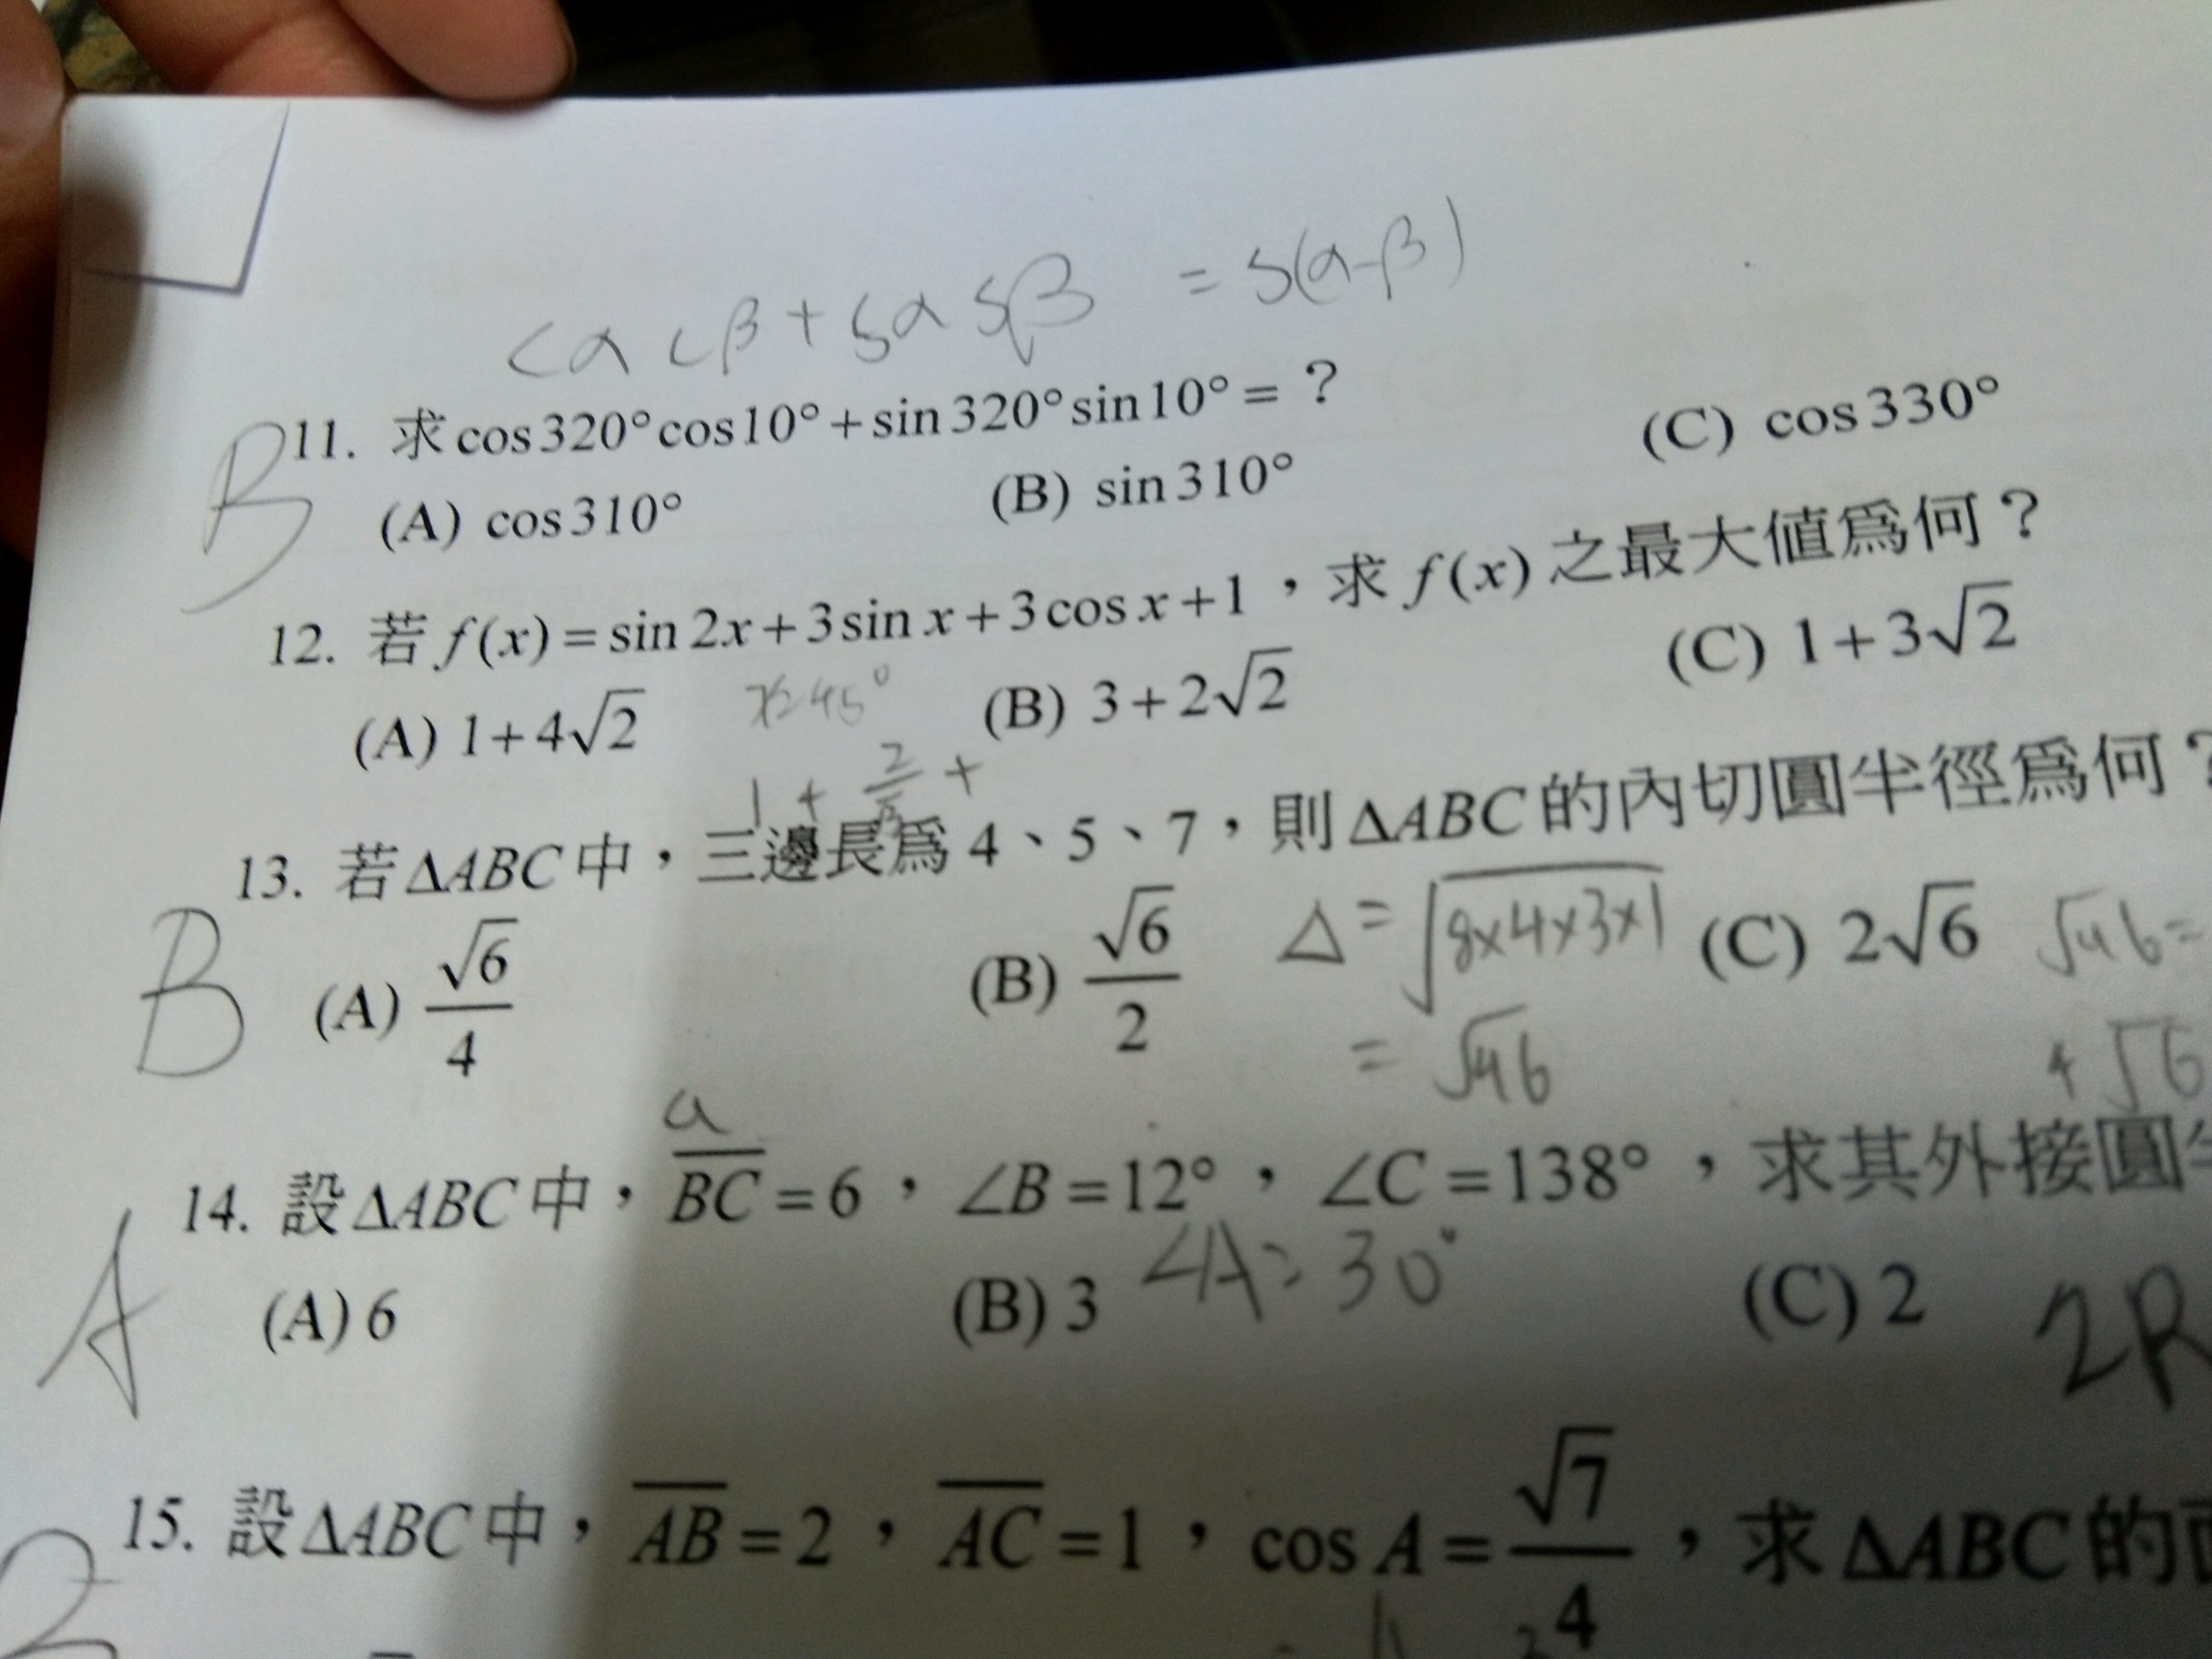 cα cβ + sα sβ = s(α-β)
B
11. 求 cos320°cos10°+sin320°sin10°= ?
(A) cos310° (B) sin310° (C) cos330°
12. 若 f(x)=sin2x+3sinx+3cosx+1，求 f(x) 之最大值爲何？
(A) 1+4√2 (B) 3+2√2 (C) 1+3√2
x=45°
1 +
13. 若ΔABC中，三邊長爲4、5、7，則ΔABC的內切圓半徑爲何？
B
(A) √6/4 (B) √6/2 (C) 2√6
Δ = √8×4×3×1
√46=
= √46
4√6
a
14. 設ΔABC中，BC=6，∠B=12°，∠C=138°，求其外接圓
A
∠A=30°
(A) 6 (B) 3 (C) 2
2R
15. 設ΔABC中，AB=2，AC=1，cosA=√7/4，求ΔABC的